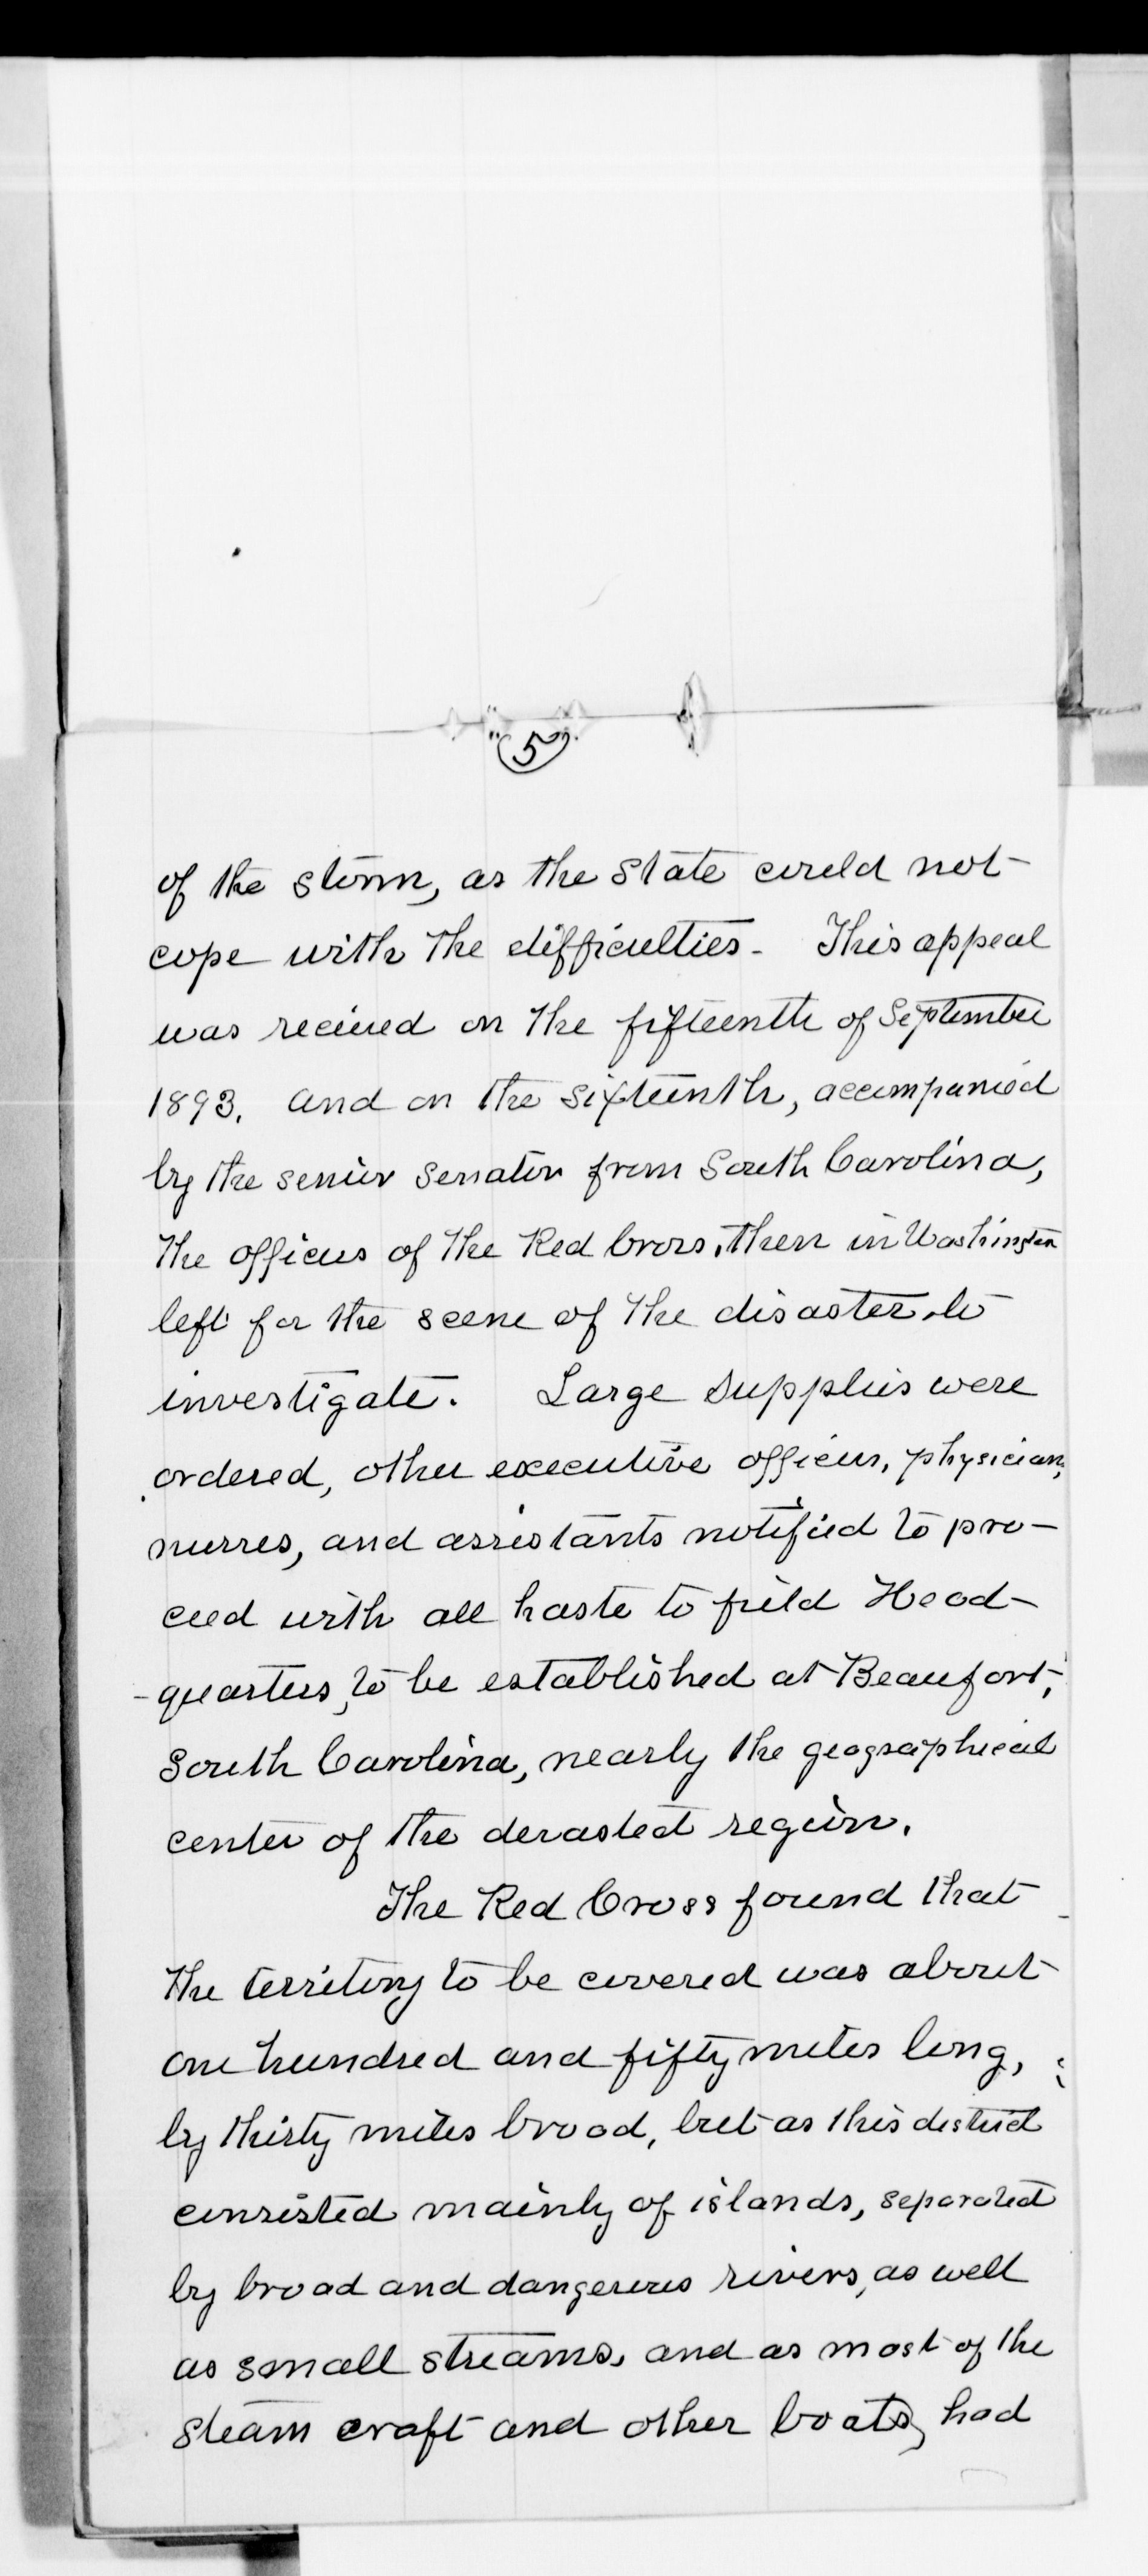 5
of the storm, as the State could not
cope with the difficulties. This appeal
was recieved on the fifteenth of September
1893. and on the sixteenth, accompanied
by the senior Senator from South Carolina,
the officers of the Red Cross, then in Washington
left for the scene of the disaster, to
investigate. Large supplies were
ordered, other executive officers, physicians,
nurses, and assistants notified to pro-
ceed with all haste to field Head-
-quarters, to be established at Beaufort,
South Carolina, nearly the geographical
center of the devasted region.
The Red Cross found that
the territory to be covered was about
one hundred and fifty miles long,
by thirty miles broad, but as this district
consisted mainly of islands, separated
by broad and dangerous rivers, as well
as small streams, and as most of the
steam craft and other boats, had